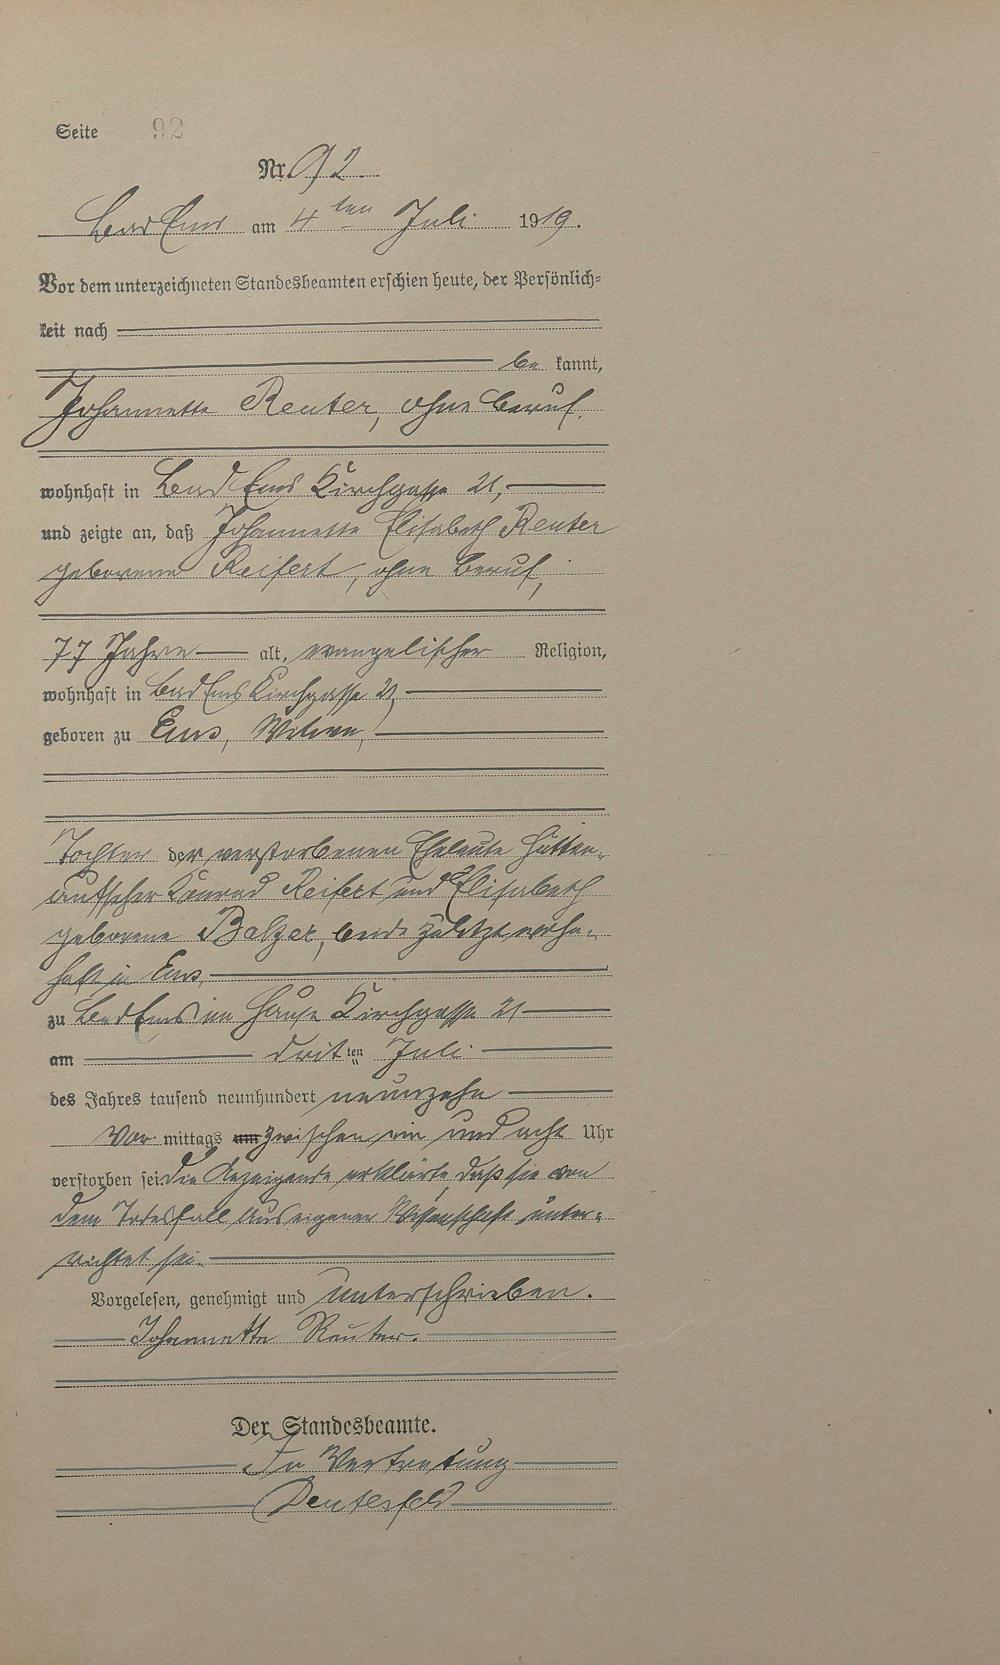 Seite 92
Nr. 92.
Bad Ems am 4ten Juli 1919.
Vor dem unterzeichneten Standesbeamten erschien heute, der Persönlich-
keit nach
be kannt,
Johannette Reuter, ohne Beruf.
wohnhaft in Bad Ems Kirchgasse 21,
und zeigte an, daß Johannette Elisabeth Reuter
geborene Reifert, ohne Beruf,
77 Jahre alt, evangelischer Religion,
wohnhaft in Bad Ems Kirchgasse 21,
geboren zu Ems, Witwe,
Tochter der verstorbenen Eheleute Hütten-
aufseher Konrad Reifert und Elisabeth
geborene Balzer, beide zuletzt wohn-
haft in Ems,
zu Bad Ems im Hause Kirchgasse 21
am drit ten Juli
des Jahres tausend neunhundert neunzehn
Vor mittags um zwischen ein und acht Uhr
verstorben sei. Die Anzeigende erklärte, daß sie von
dem Todesfall aus eigener Wissenschaft unter-
richtet sei.
Vorgelesen, genehmigt und unterschrieben.
Johannette Reuter.
Der Standesbeamte.
In Vertretung